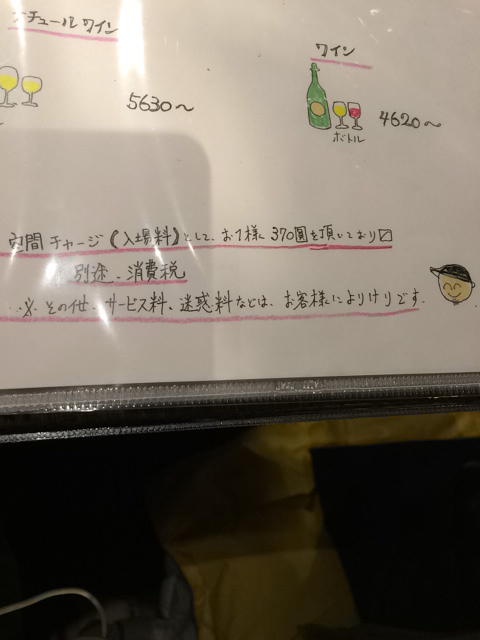 チュールワイン
ワイン
ボトル
5630〜
4620〜
空間チャージ(入場料)として、お1様 370圓を頂いており〼
別途、消費税
※その他、サービス料、迷惑料などは、お客様によりけりです。